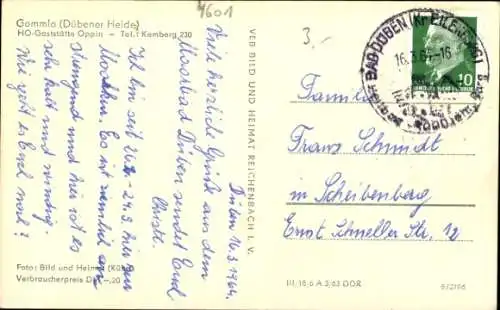 4601
Gommlo (Dübener Heide)
HO-Gaststätte Oppin - Tel.: Kemberg 230
3.-
BAD DÜBEN (Kr. EILENBURG)
16.3.64-16
10
Düben 16.3.1964
Viele herzliche Grüße aus dem
Moorbad Düben sendet Euch
Christl.
Ich bin seit 26.2.-24.3. hier im
Moorbad. Es ist ziemlich
und hier ist es
sehr kalt und windig.
Wie geht es Euch mal?
VEB BILD UND HEIMAT REICHENBACH I. V.
Familie
Franz Schmidt
in Scheibenberg
Ernst Schneller Str. 12
Foto: Bild und Heimat
Verbraucherpreis DM -,20
III/18/6 A 3/63 DDR